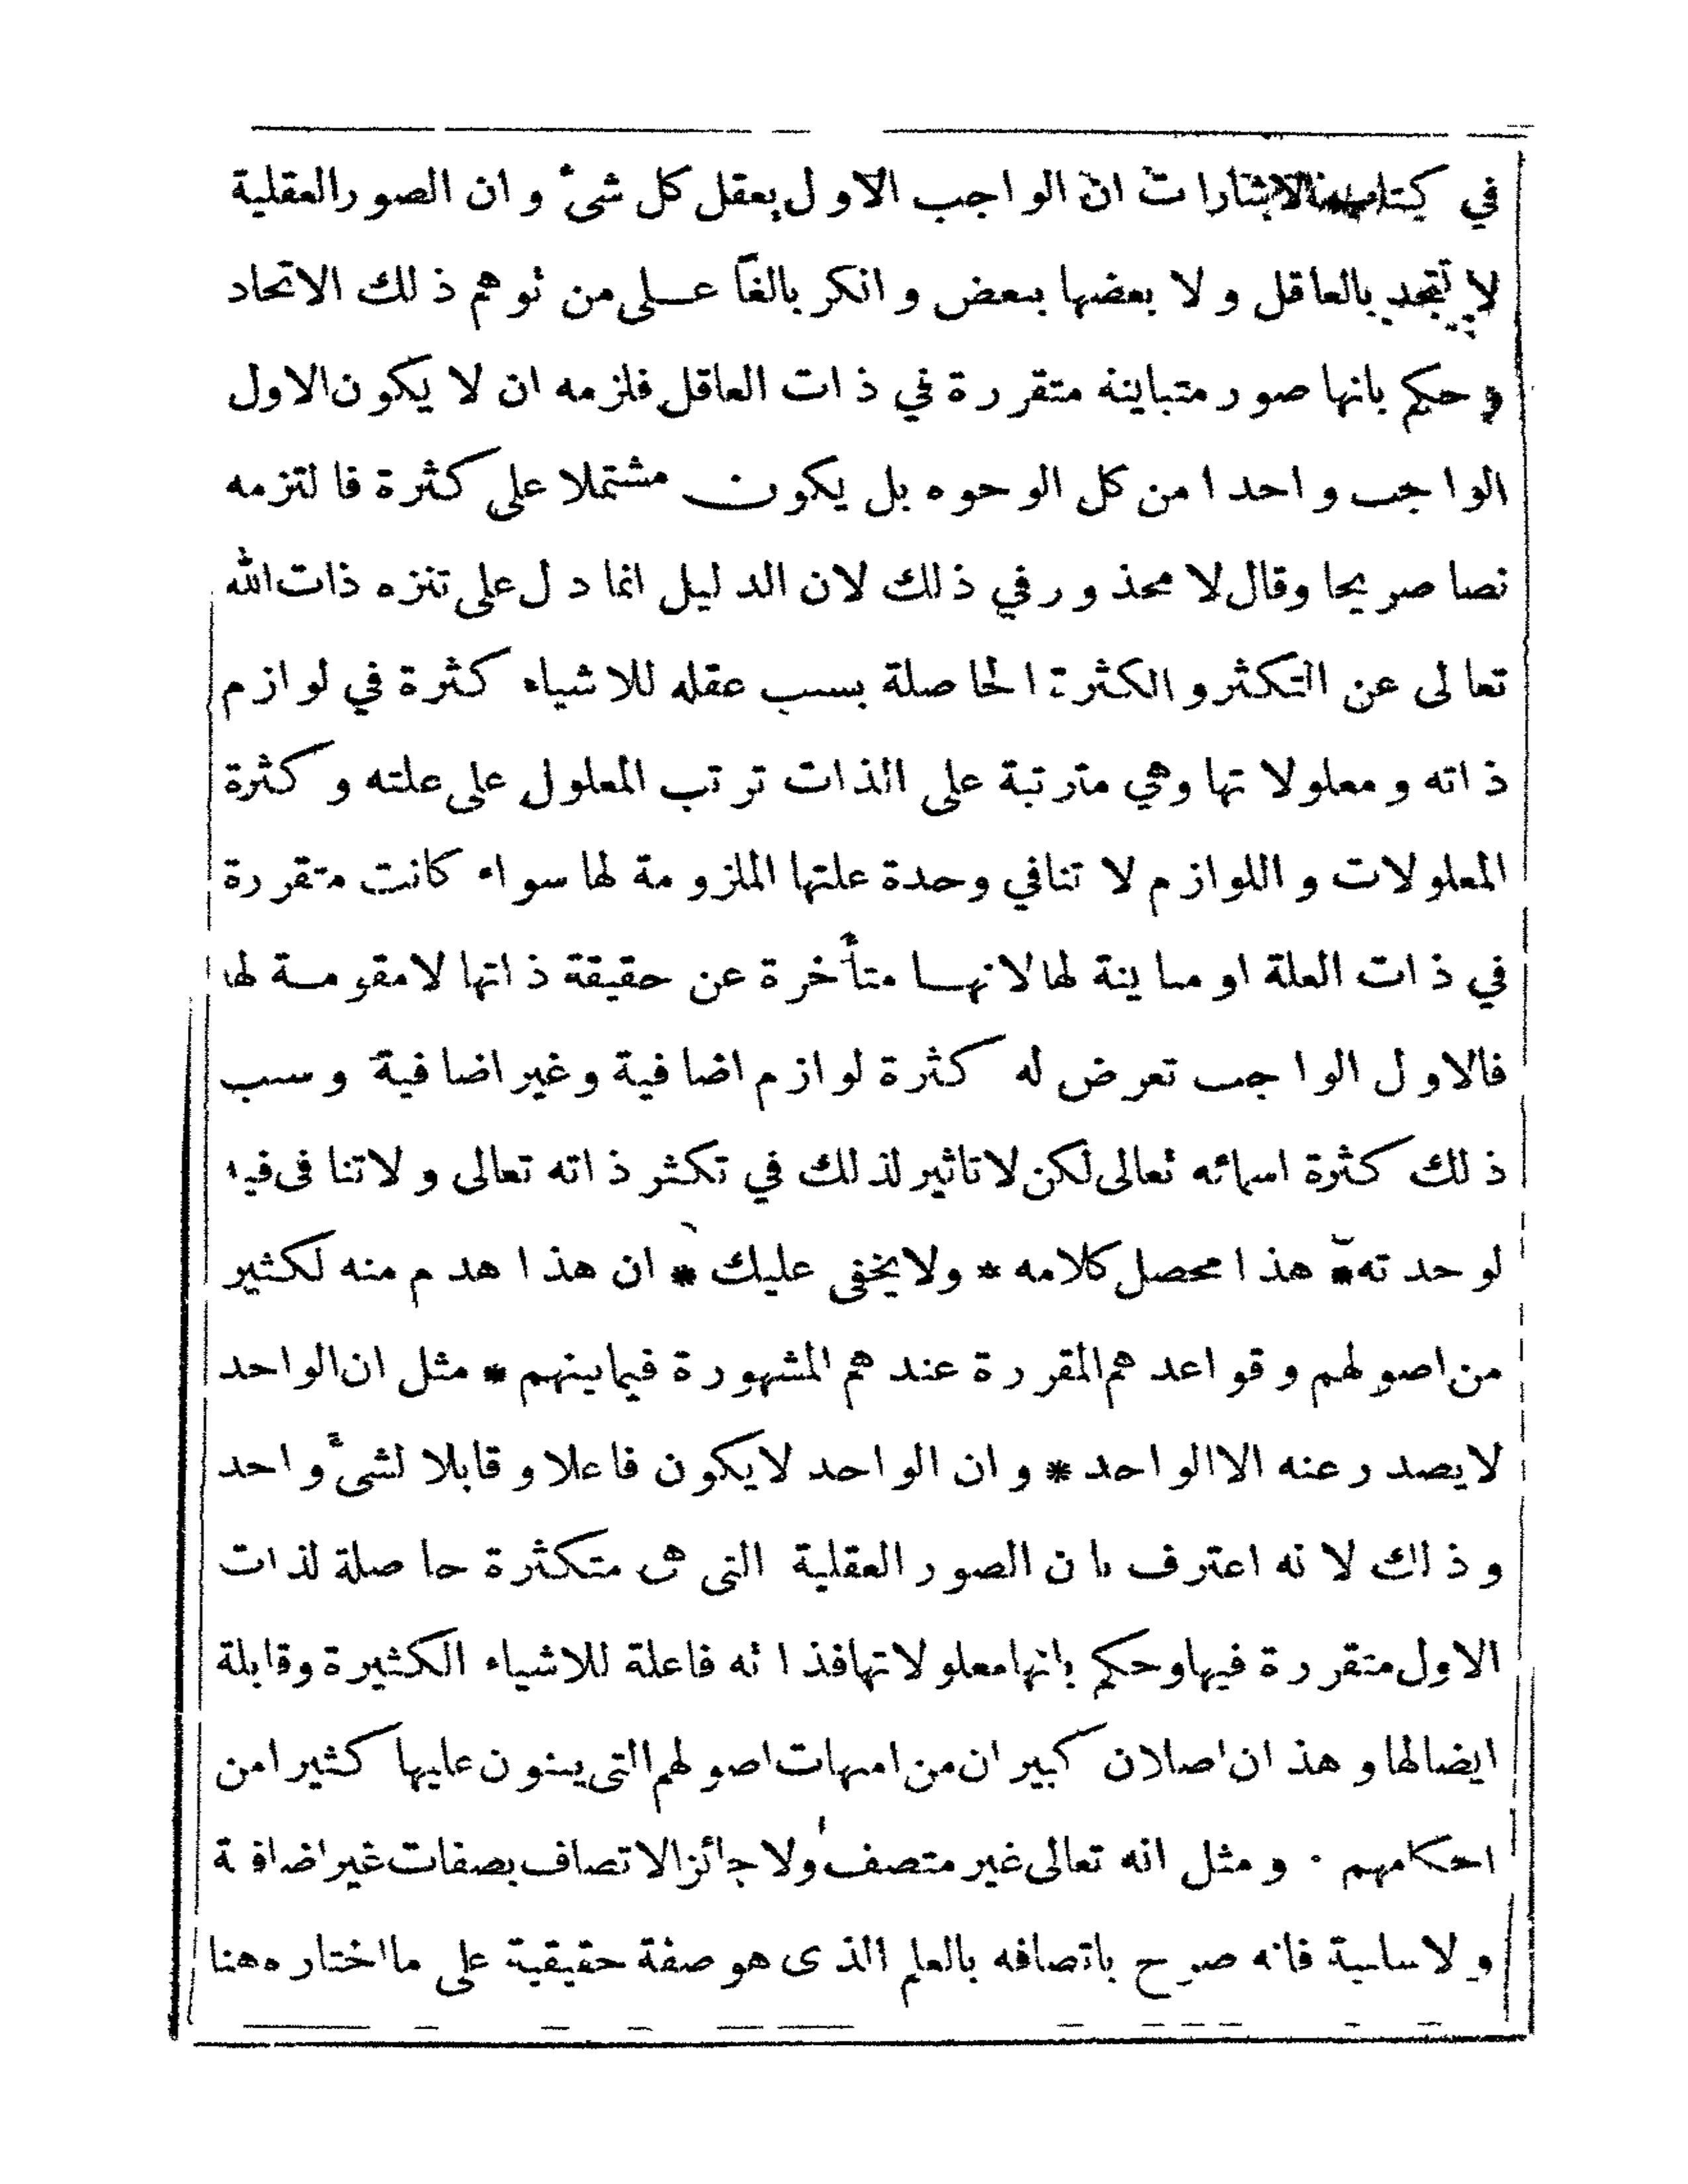 في كتاب الاشارات ان الواجب الاول يعقل كل شئ وان الصور العقلية
لا تتحد بالعاقل ولا بعضها ببعض وانكر بالغاً علــى من توهم ذلك الاتحاد
وحكم بانها صور متباينة متقررة في ذات العاقل فلزمه ان لا يكون الاول
الواجب واحدا من كل الوجوه بل يكون مشتملا على كثرة فالتزمه
نصا صريحا وقال لا محذور في ذلك لان الدليل انما دل على تنزه ذات الله
تعالى عن التكثر والكثرة الحاصلة بسبب عقله للاشياء كثرة في لوازم
ذاته ومعلولاتها وهي مترتبة على الذات ترتب المعلول على علته وكثرة
المعلولات واللوازم لا تنافي وحدة علتها الملزومة لها سواء كانت متقررة
في ذات العلة او مباينة لها لانهــا متأخرة عن حقيقة ذاتها لا مقومــة لها
فالاول الواجب تعرض له كثرة لوازم اضافية وغير اضافية وسبب
ذلك كثرة اسمائه تعالى لكن لا تاثير لذلك في تكثر ذاته تعالى ولا تنافى فيه
لوحدته * هذا محصل كلامه * ولا يخفى عليك * ان هذا هدم منه لكثير
من اصولهم وقواعدهم المقررة عندهم المشهورة فيما بينهم * مثل ان الواحد
لا يصدر عنه الا الواحد * وان الواحد لا يكون فاعلا وقابلا لشئ واحد
وذلك لانه اعترف بان الصور العقلية التى هى متكثرة حاصلة لذات
الاول متقررة فيها وحكم بانها معلولاتها فذاته فاعلة للاشياء الكثيرة وقابلة
ايضا لها وهذان اصلان كبيران من امهات اصولهم التى يبنون عليها كثيرا من
احكامهم . ومثل انه تعالى غير متصف ولا جائز الاتصاف بصفات غير اضافية
ولا سلبية فانه صرح باتصافه بالعلم الذى هو صفة حقيقية على ما اختاره هنا